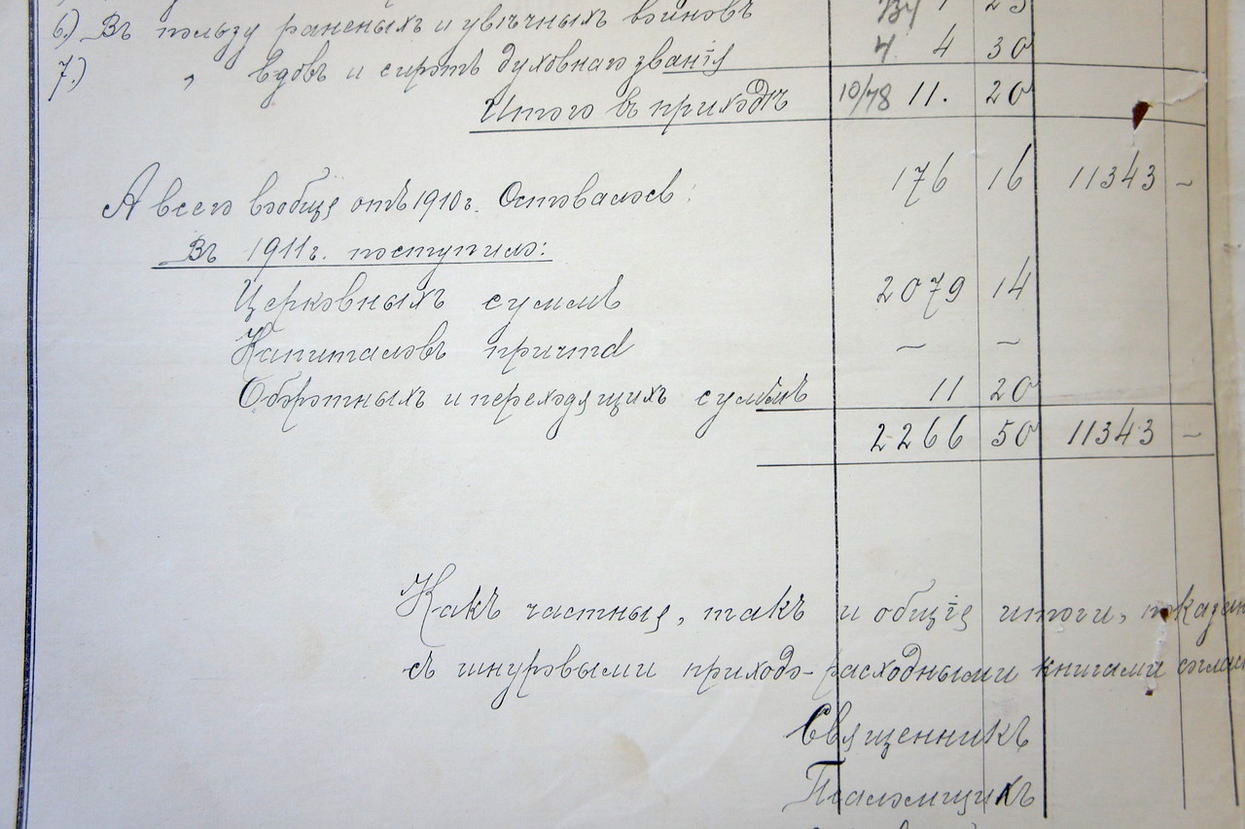 6.) Въ пользу раненыхъ и увѣчныхъ воиновъ
7.) „ вдовъ и сиротъ духовнаго званія 4. 4 30
Итого въ приходѣ 10/78 11. 20
А всего вообще отъ 1910 г. Оставалось: 176 16 11343 –
Въ 1911 г. поступило:
Церковныхъ суммъ 2079 14
Капиталовъ причта – –
Оборотныхъ и переходящихъ суммъ 11 20
2266 50 11343 –
Какъ частныя, такъ и общія итоги,
съ шнуровыми приходо-расходными книгами
Священникъ
Псаломщикъ